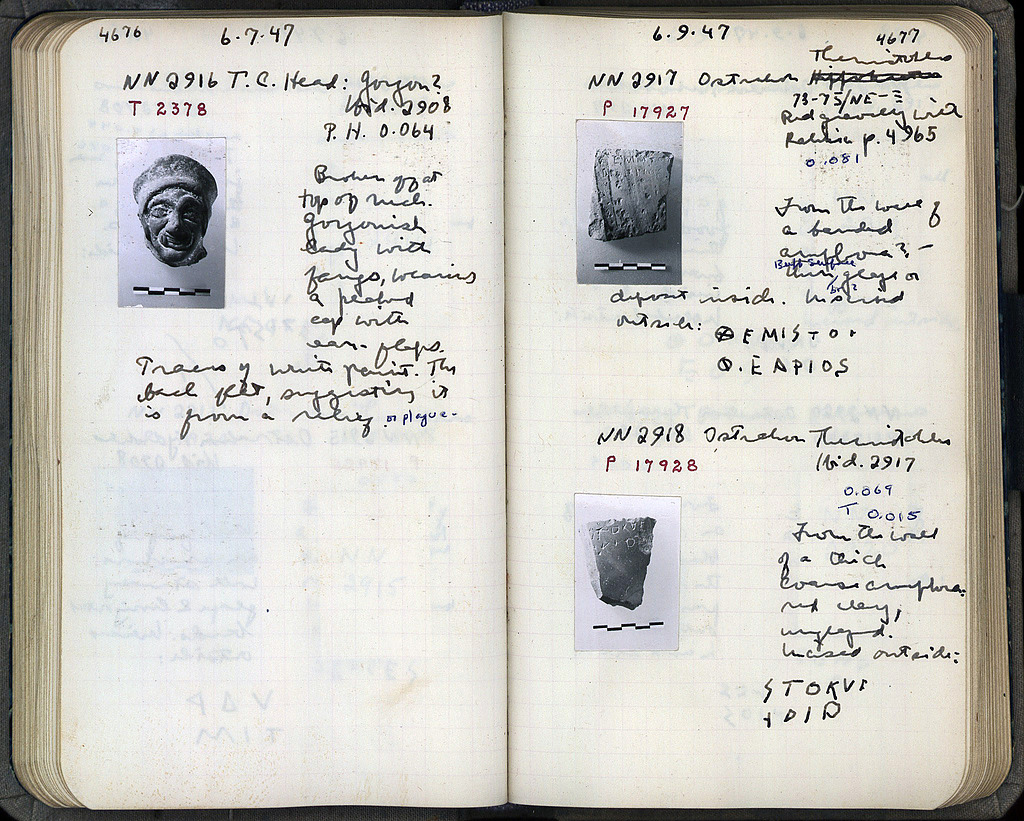 4676
6.7.47
NN 2916 T.C. Head: Gorgon?
T 2378
Ibid. 2908
P.H. 0.064
Broken off at
top of neck.
Gorgonish
lady with
fangs, wearing
a peaked
cap with
ear-flaps.
Traces of white paint. The
back flat, suggesting it
is from a relief or plaque.
6.9.47
4677
Themistokles
NN 2917 Ostrakon
P 17927
73-75/NE-
Red gravelly with
p. 4965
0.081
From the wall of
a banded
amphora? –
Buff surface
thin glaze or
deposit inside. Incised
outside:
ΘEMISTO
O.EAPIOS
NN 2918 Ostrakon Themistokles
P 17928
Ibid. 2917
0.069
T 0.015
From the wall
of a thick
coarse amphora.
red clay,
unglazed.
Incised outside:
STOKVE